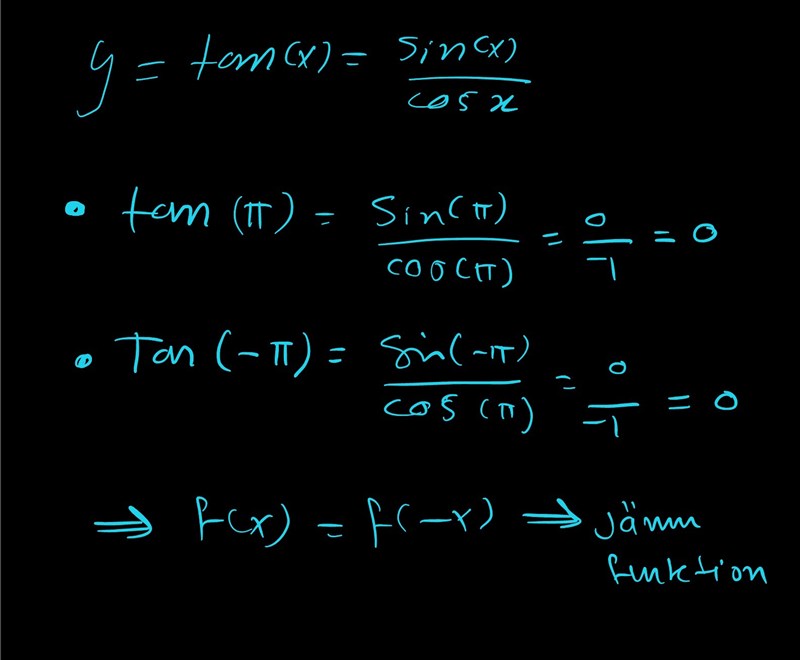 y = tan(x) = sin(x) / cos x
• tan (π) = sin(π) / cos(π) = 0 / -1 = 0
• Tan (-π) = sin(-π) / cos (π) = 0 / -1 = 0
⇒ f(x) = f(-x) ⇒ Jämn
funktion